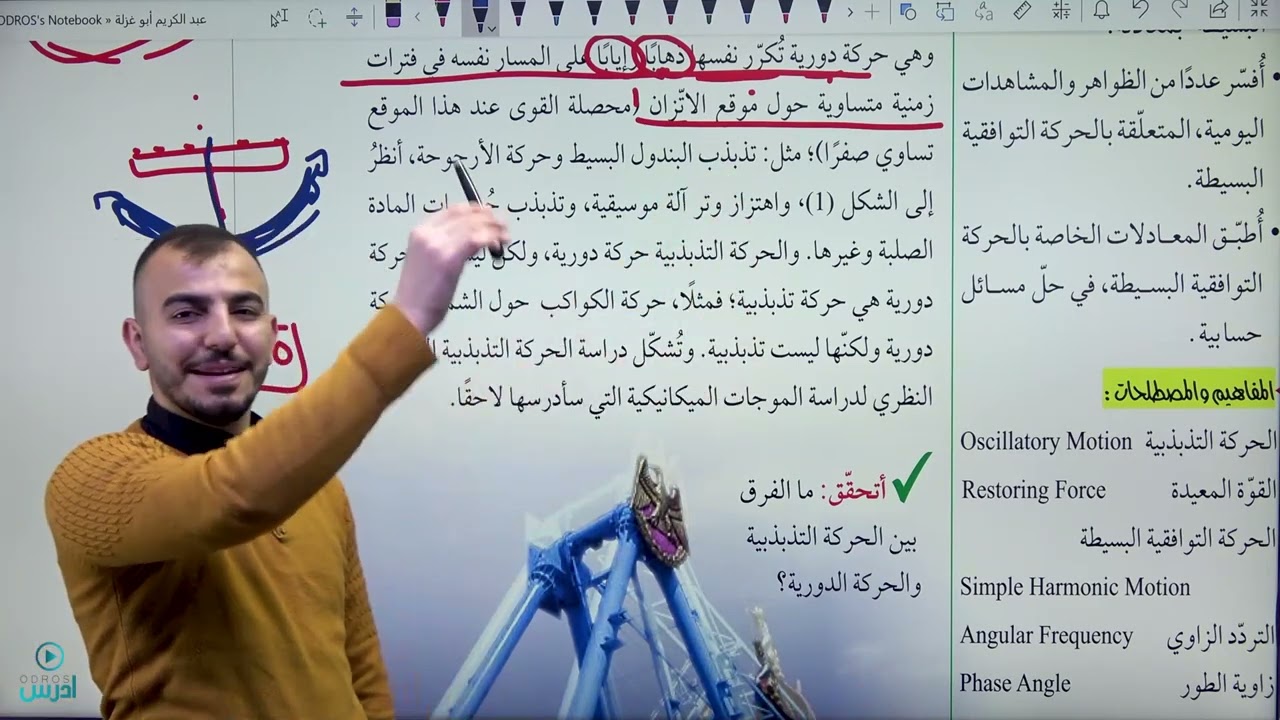 ODROS's Notebook » عبد الكريم أبو غزلة
وهي حركة دورية تُكرّر نفسها ذهابًا إيابًا على المسار نفسه في فترات
زمنية متساوية حول موقع الاتّزان (محصلة القوى عند هذا الموقع
تساوي صفرًا)؛ مثل: تذبذب البندول البسيط وحركة الأرجوحة، أنظرُ
إلى الشكل (1)، واهتزاز وتر آلة موسيقية، وتذبذب المادة
الصلبة وغيرها. والحركة التذبذبية حركة دورية، ولكن حركة
دورية هي حركة تذبذبية؛ فمثلًا، حركة الكواكب حول
دورية ولكنّها ليست تذبذبية. وتُشكّل دراسة الحركة التذبذبية
النظري لدراسة الموجات الميكانيكية التي سأدرسها لاحقًا.
أتحقّق: ما الفرق
بين الحركة التذبذبية
والحركة الدورية؟
• أُفسّر عددًا من الظواهر والمشاهدات
اليومية، المتعلّقة بالحركة التوافقية
البسيطة.
• أُطبّق المعادلات الخاصة بالحركة
التوافقية البسيطة، في حلّ مسائل
حسابية.
المفاهيم والمصطلحات:
الحركة التذبذبية Oscillatory Motion
القوّة المعيدة Restoring Force
الحركة التوافقية البسيطة
Simple Harmonic Motion
التردّد الزاوي Angular Frequency
زاوية الطور Phase Angle
ODROS
ادرس